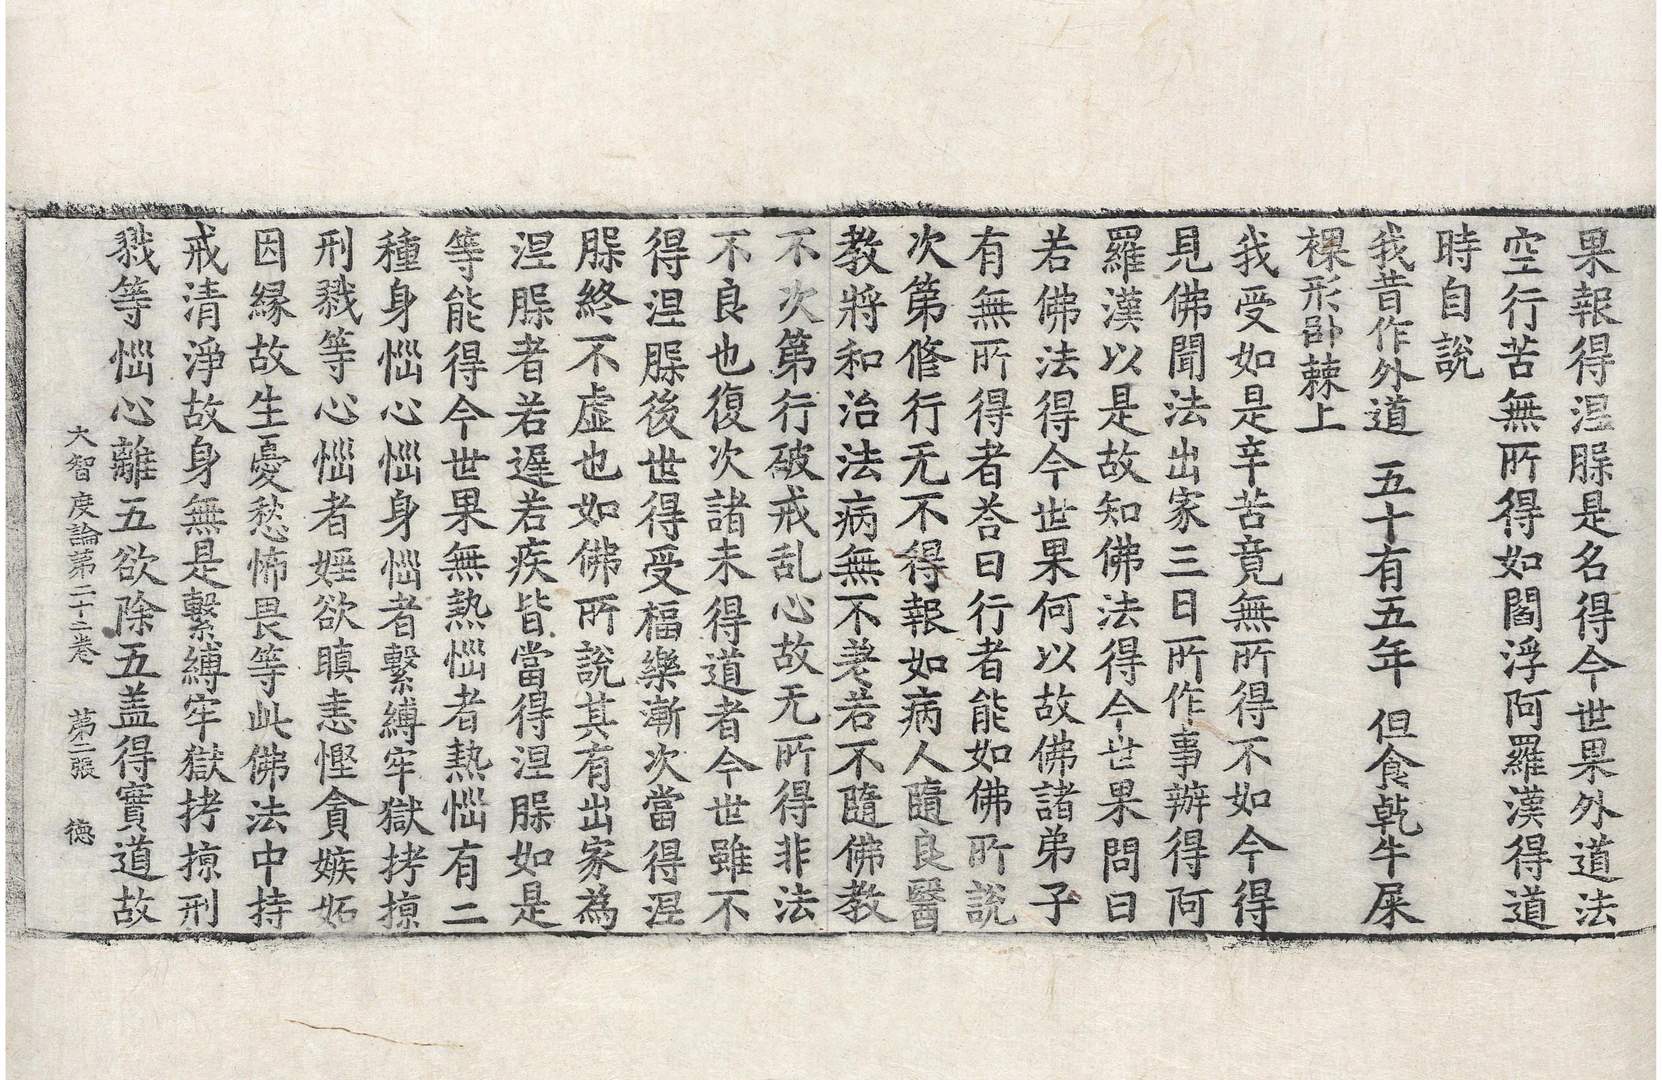 果報得涅槃是名得今世果外道法
空行苦無所得如閻浮阿羅漢得道
時自說
我昔作外道　五十有五年　但食乾牛屎
裸形卧棘上
我受如是辛苦竟無所得不如今得
見佛聞法出家三日所作事辦得阿
羅漢以是故知佛法得今世果問曰
若佛法得今世果何以故佛諸弟子
有無所得者荅曰行者能如佛所說
次第修行无不得報如病人隨良醫
教將和治法病無不差若不隨佛教
不次第行破戒乱心故无所得非法
不良也復次諸未得道者今世雖不
得涅槃後世得受福樂漸次當得涅
槃終不虛也如佛所說其有出家為
涅槃者若遲若疾皆當得涅槃如是
等能得今世果無熱惱者熱惱有二
種身惱心惱身惱者繫縛牢獄拷掠
刑戮等心惱者婬欲瞋恚慳貪嫉妬
因緣故生憂愁怖畏等此佛法中持
戒清淨故身無是繫縛牢獄拷掠刑
戮等惱心離五欲除五盖得實道故
大智度論第二十二卷　第二張　德